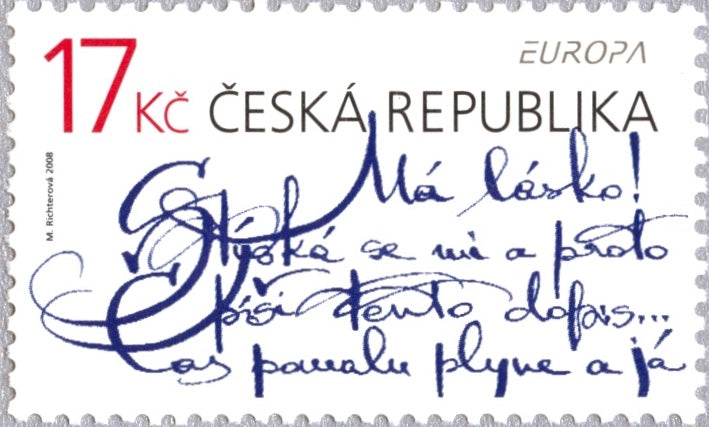 EUROPA
17Kč ČESKÁ REPUBLIKA
M. Richterová 2008
Má lásko!
Stýská se mi a proto
píši tento dopis...
Čas pomalu plyne a já